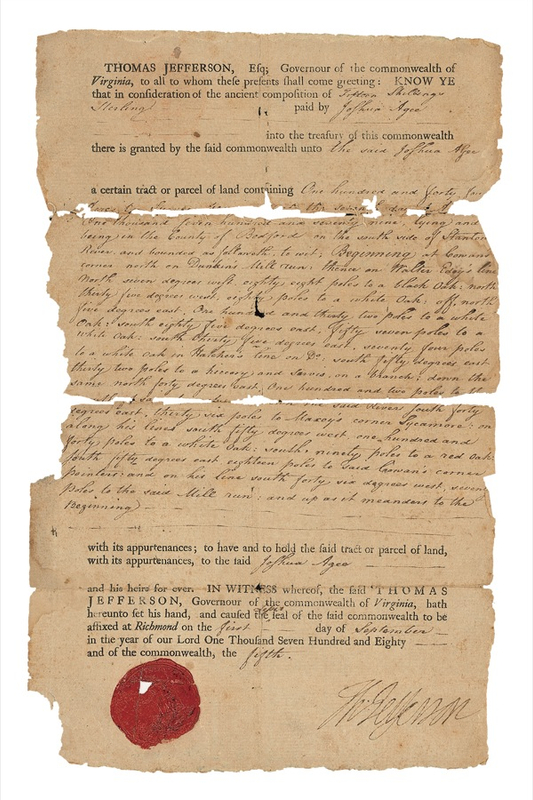 THOMAS JEFFERSON, Esq; Governour of the commonwealth of
Virginia, to all to whom these presents shall come greeting: KNOW YE
that in consideration of the ancient composition of Fifteen Shillings
Sterling paid by Joshua Agee
into the treasury of this commonwealth
there is granted by the said commonwealth unto the said Joshua Agee
a certain tract or parcel of land containing One hundred and forty
One thousand seven hundred and seventy nine, lying and
being in the County of Bedford on the south side of Stanton
River and bounded as followeth, to wit, Beginning at Cowans
corner north on Dunkins Mill run; thence on Walter Edey's line
North seven degrees west eighty eight poles to a black Oak; north
thirty five degrees west, eighty poles to a white Oak; off, north
five degrees east, One hundred and thirty two poles to a white
Oak; south eighty five degrees east, fifty seven poles to a
white Oak; south thirty five degrees east, seventy four poles
to a white oak in Hatcher's line on &c. south fifty degrees east
thirty two poles to a hiccory and on a branch; down the
same north forty degrees east, One hundred and two poles to
said south forty
degrees east, thirty six poles to Maxey's corner Sycamore; on
along his lines south fifty degrees west one hundred and
forty poles to a white Oak; south, ninety poles to a red Oak;
south fifty degrees east eighteen poles to said Cowan's corner
pointers; and on his line south forty six degrees west, seven
Poles to the said Mill run; and up as it meanders to the
Beginning
with its appurtenances; to have and to hold the said tract or parcel of land,
with its appurtenances, to the said Joshua Agee
and his heirs for ever. IN WITNESS whereof, the said THOMAS
JEFFERSON, Governour of the commonwealth of Virginia, hath
hereunto set his hand, and caused the seal of the said commonwealth to be
affixed at Richmond on the first day of September
in the year of our Lord One Thousand Seven Hundred and Eighty
and of the commonwealth, the fifth.
Th: Jefferson